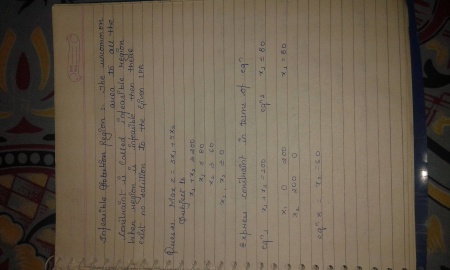 Infeasible Solution Region :- The uncommon
area to all the
Constraint is called infeasible region
when region is infeasible then there
exist no solution to the given LPP
Max Z = 3x₁ + 5x₂
Subject to
x₁ + x₂ ≥ 200
x₁ ≤ 80
x₂ ≥ 60
x₁, x₂ ≥ 0
Express constraint in term of eqⁿ
eqⁿ 1 x₁ + x₂ = 200 eqⁿ 2 x₁ ≤ 80
x₁ 0 200 x₁ = 80
x₂ 200 0
eqⁿ 3 x₂ = 60